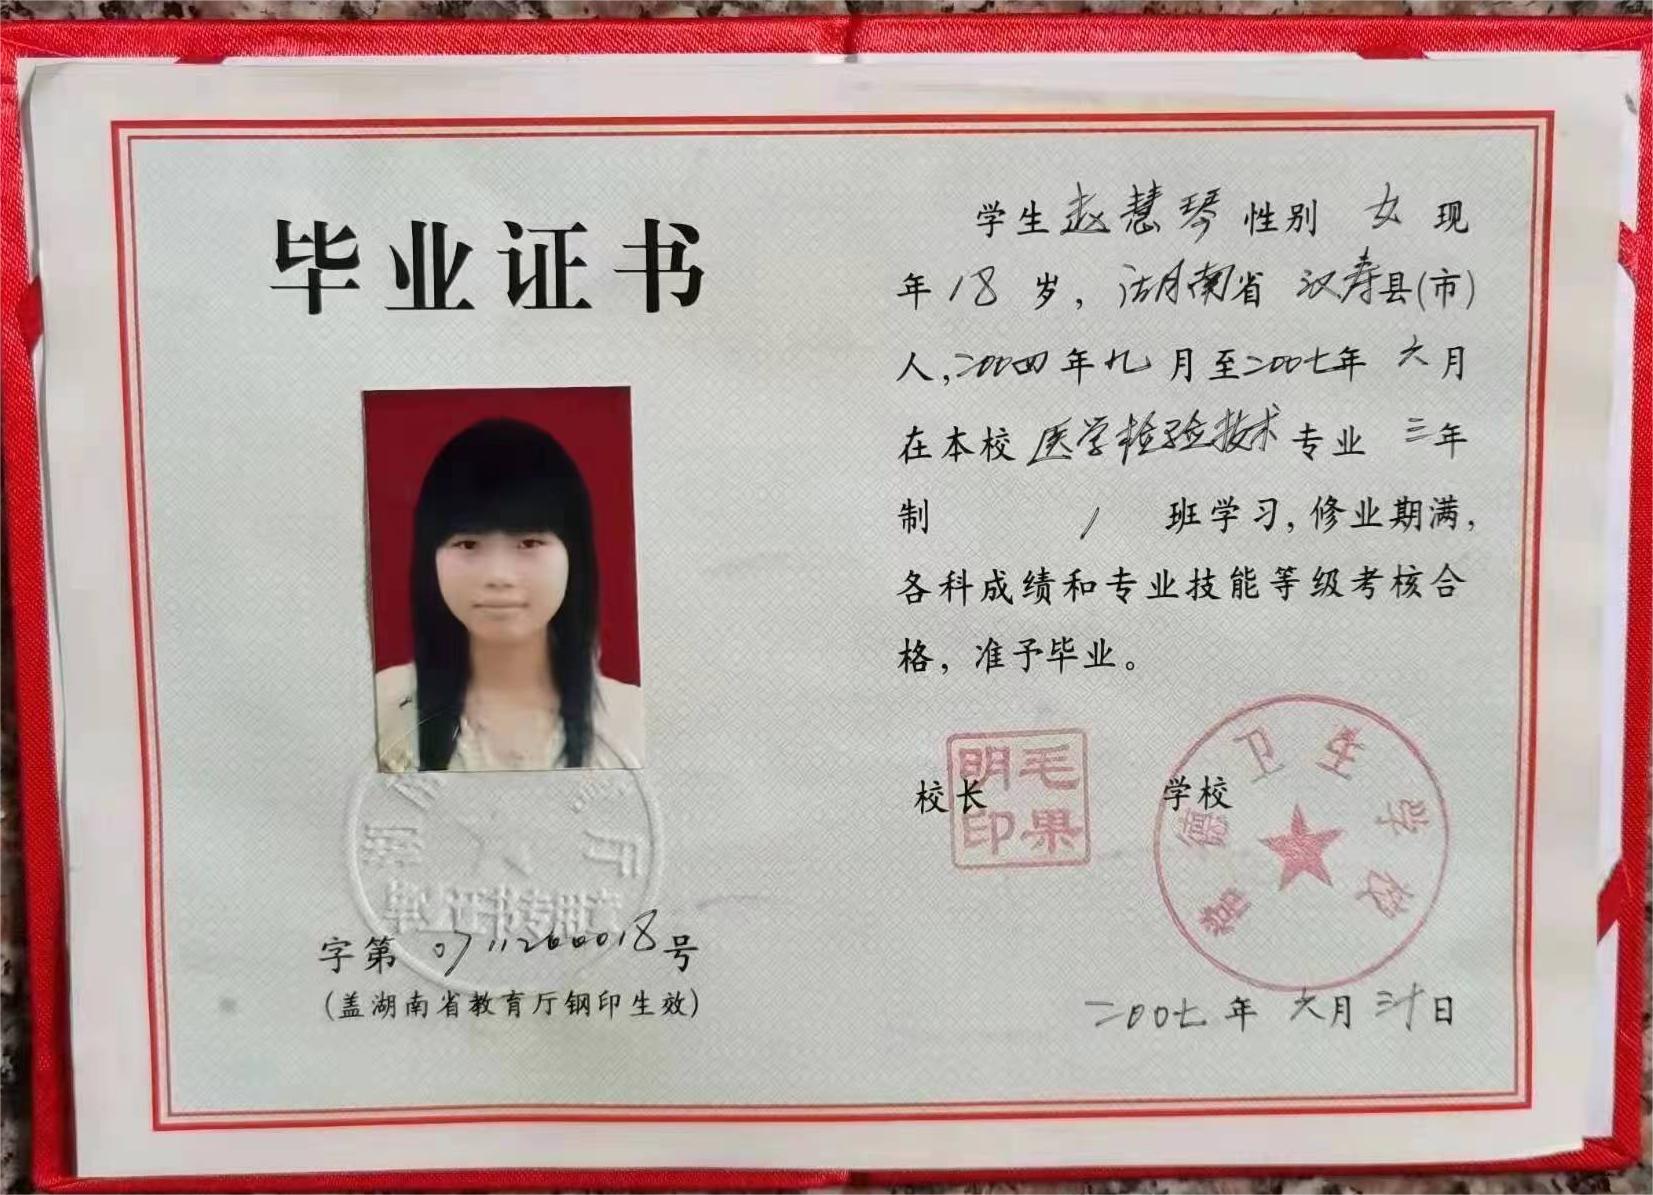 毕业证书
字第0711260018号
(盖湖南省教育厅钢印生效)
毕业证书专用章
学生赵慧琴性别 女 现
年18岁，湖南省 汉寿县(市)
人，二00四年九月至二00七年六月
在本校医学检验技术专业 三年
制 / 班学习，修业期满，
各科成绩和专业技能等级考核合
格，准予毕业。
校长
毛果明印
学校
常德卫生学校
二00七年六月三十日